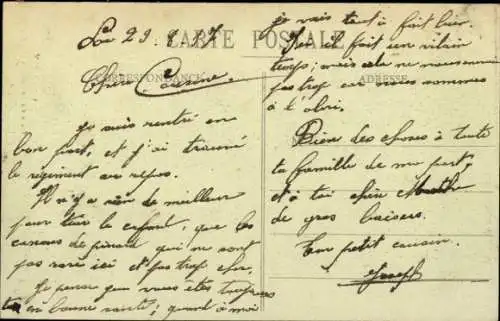 Le 29. 8. 1917
CARTE POSTALE
CORRESPONDANCE
ADRESSE
Chère Cousine
Je suis rentré en
bon port, et j'ai trouvé
le régiment au repos.
Il n'y a rien de meilleur
pour tuer le cafard, que les
de pinard qui ne sont
pas rare ici et pas trop cher.
Je pense que vous êtes toujours
en bonne santé ; quand à moi
je vais tout à fait bien.
Hier il fait un vilain
temps ; mais cela ne nous
pas trop car nous sommes
à l'abri.
Bien des choses à toute
ta famille de ma part,
et à toi chère Marthe
de gros baisers.
Ton petit cousin.
Joseph